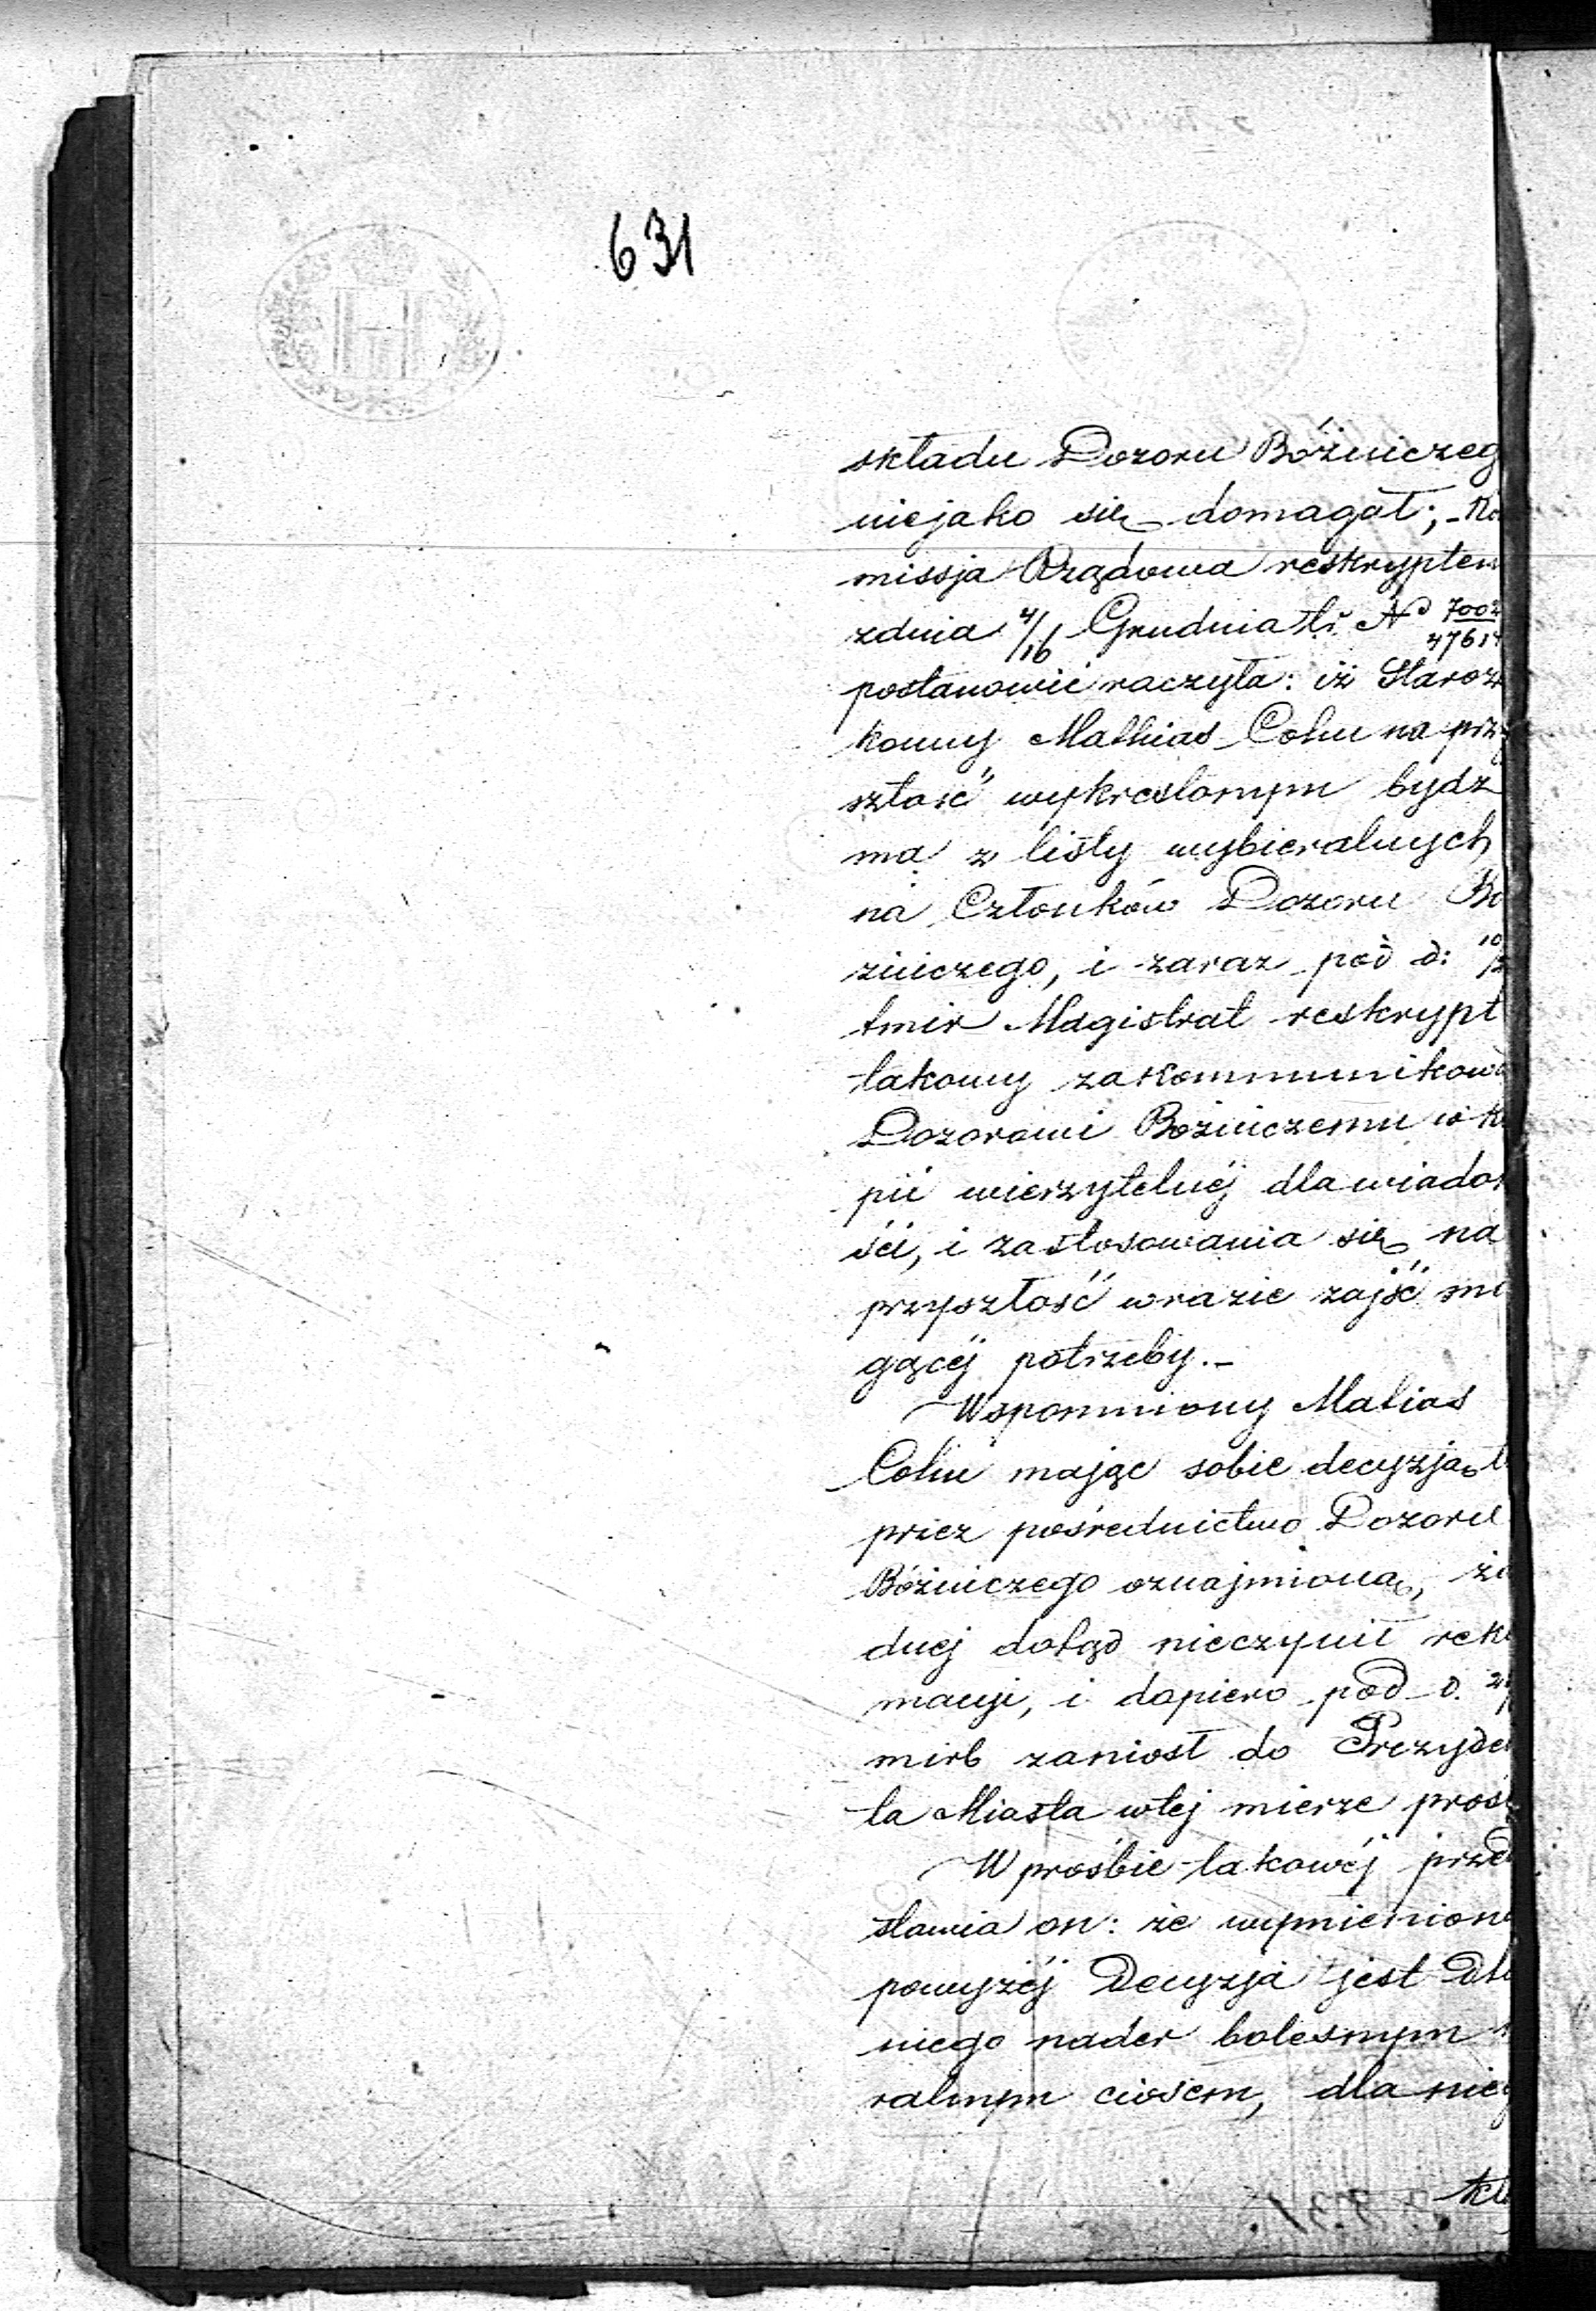 631
składu Dozoru Bóżniczeg
niejako się domagał; - Ko
missja Rządowa reskryptem
zdnia 4/16 Grudnia t.r. No 7002/47614
postanowić raczyła: iż Staroza
konny Mathias Cohn na przy
szłość wykreślonym bydz
ma z listy wybieralnych
na Członków Dozoru Bo
żniczego, i zaraz pod d:
tmir Magistrat reskrypt
takowy zakommunikowa
Dozorowi Bożniczemu w ko
pii wierzytelnéj dla wiadom
ści, i zastosowania się na
przyszłość wrazie zajść mo
gącéj potrzeby. -
Wspomniony Matias
Cohn mając sobie decyzją t
przez pośrednictwo Dozoru
Bóżniczego oznajmioną, ża
dnej dotąd nieczynił rekl
macyi, i dopiero pod d.
mirb zaniosł do Prezyden
ta Miasta wtej mierze proś
W prośbie takowéj przed
stawia on: że wymieniona
powyżéj Decyzja jest dla
niego nader bolesnym m
ralnym ciosem, dla nieg